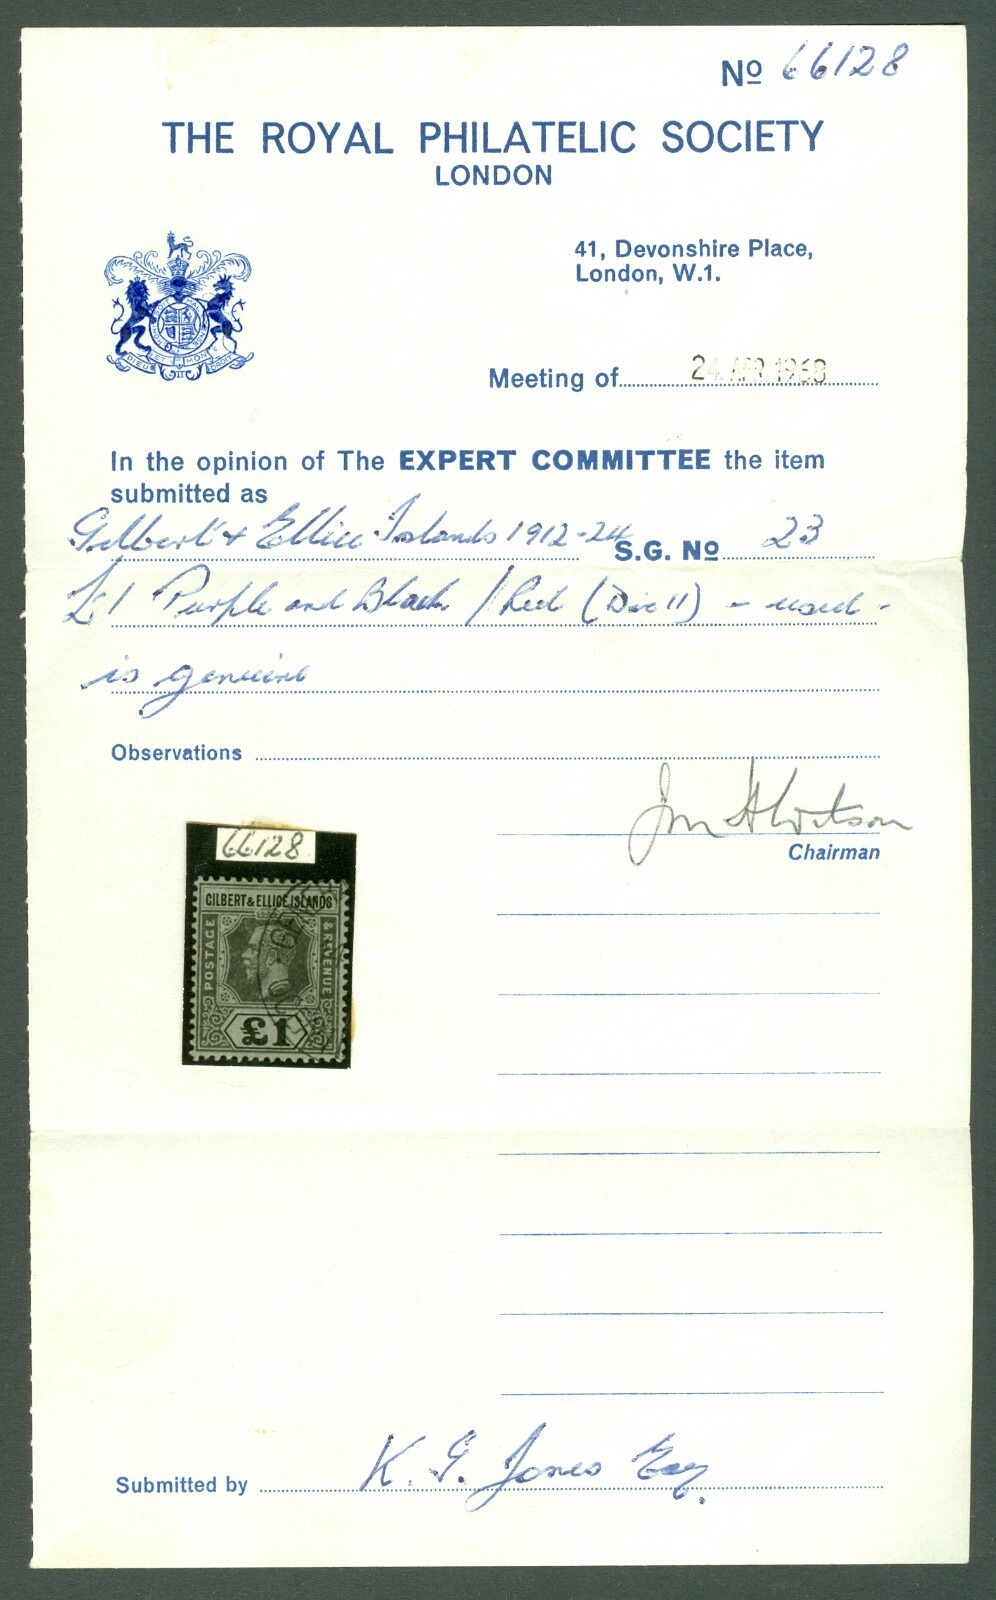 No 66128
THE ROYAL PHILATELIC SOCIETY
LONDON
41, Devonshire Place,
London, W.1.
DIEU ET MON DROIT
Meeting of 24 APR 1968
In the opinion of The EXPERT COMMITTEE the item
submitted as
Gilbert & Ellice Islands 1912-24 S.G. No 23
£1 Purple and Black / Red (Die II) - used -
is genuine
Observations
Chairman
66128
GILBERT & ELLICE ISLANDS
POSTAGE
& REVENUE
£1
Submitted by K. G. Jones Esq.